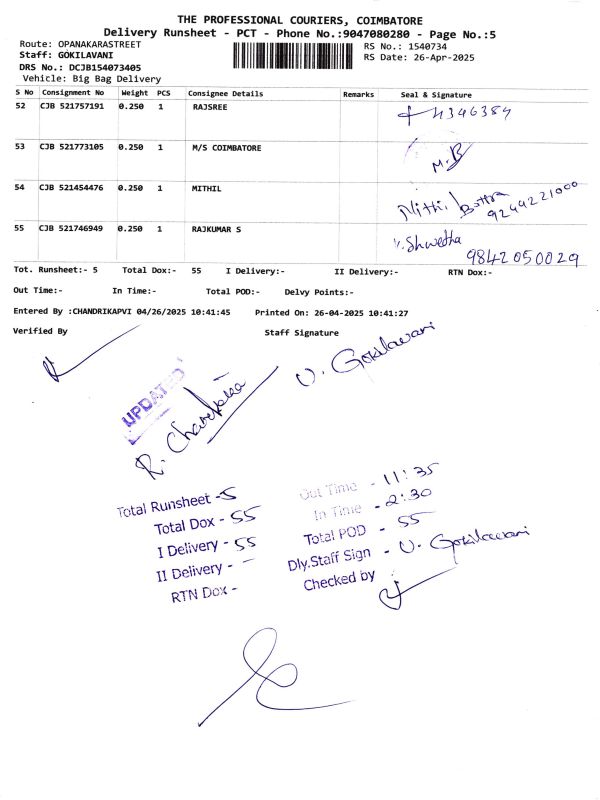 THE PROFESSIONAL COURIERS, COIMBATORE
Delivery Runsheet - PCT - Phone No.:9047080280 - Page No.:5
Route: OPANAKARASTREET
RS No.: 1540734
Staff: GOKILAVANI
RS Date: 26-Apr-2025
DRS No.: DCJB154073405
Vehicle: Big Bag Delivery
S No Consignment No Weight PCS Consignee Details Remarks Seal & Signature
52 CJB 521757191 0.250 1 RAJSREE 4346384
53 CJB 521773105 0.250 1 M/S COIMBATORE M.B
54 CJB 521454476 0.250 1 MITHIL Mithil Bothra 9244221000
55 CJB 521746949 0.250 1 RAJKUMAR S V. Shwetha 9842050029
Tot. Runsheet:- 5 Total Dox:- 55 I Delivery:- II Delivery:- RTN Dox:-
Out Time:- In Time:- Total POD:- Delvy Points:-
Entered By :CHANDRIKAPVI 04/26/2025 10:41:45 Printed On: 26-04-2025 10:41:27
Verified By Staff Signature
U. Gokilavani
UPDATED
R. Chandrika
Total Runsheet - 5
Total Dox - 55
I Delivery - 55
II Delivery - -
RTN Dox -
Out Time - 11:35
In Time - 2:30
Total POD - 55
Dly.Staff Sign - U. Gokilavani
Checked by